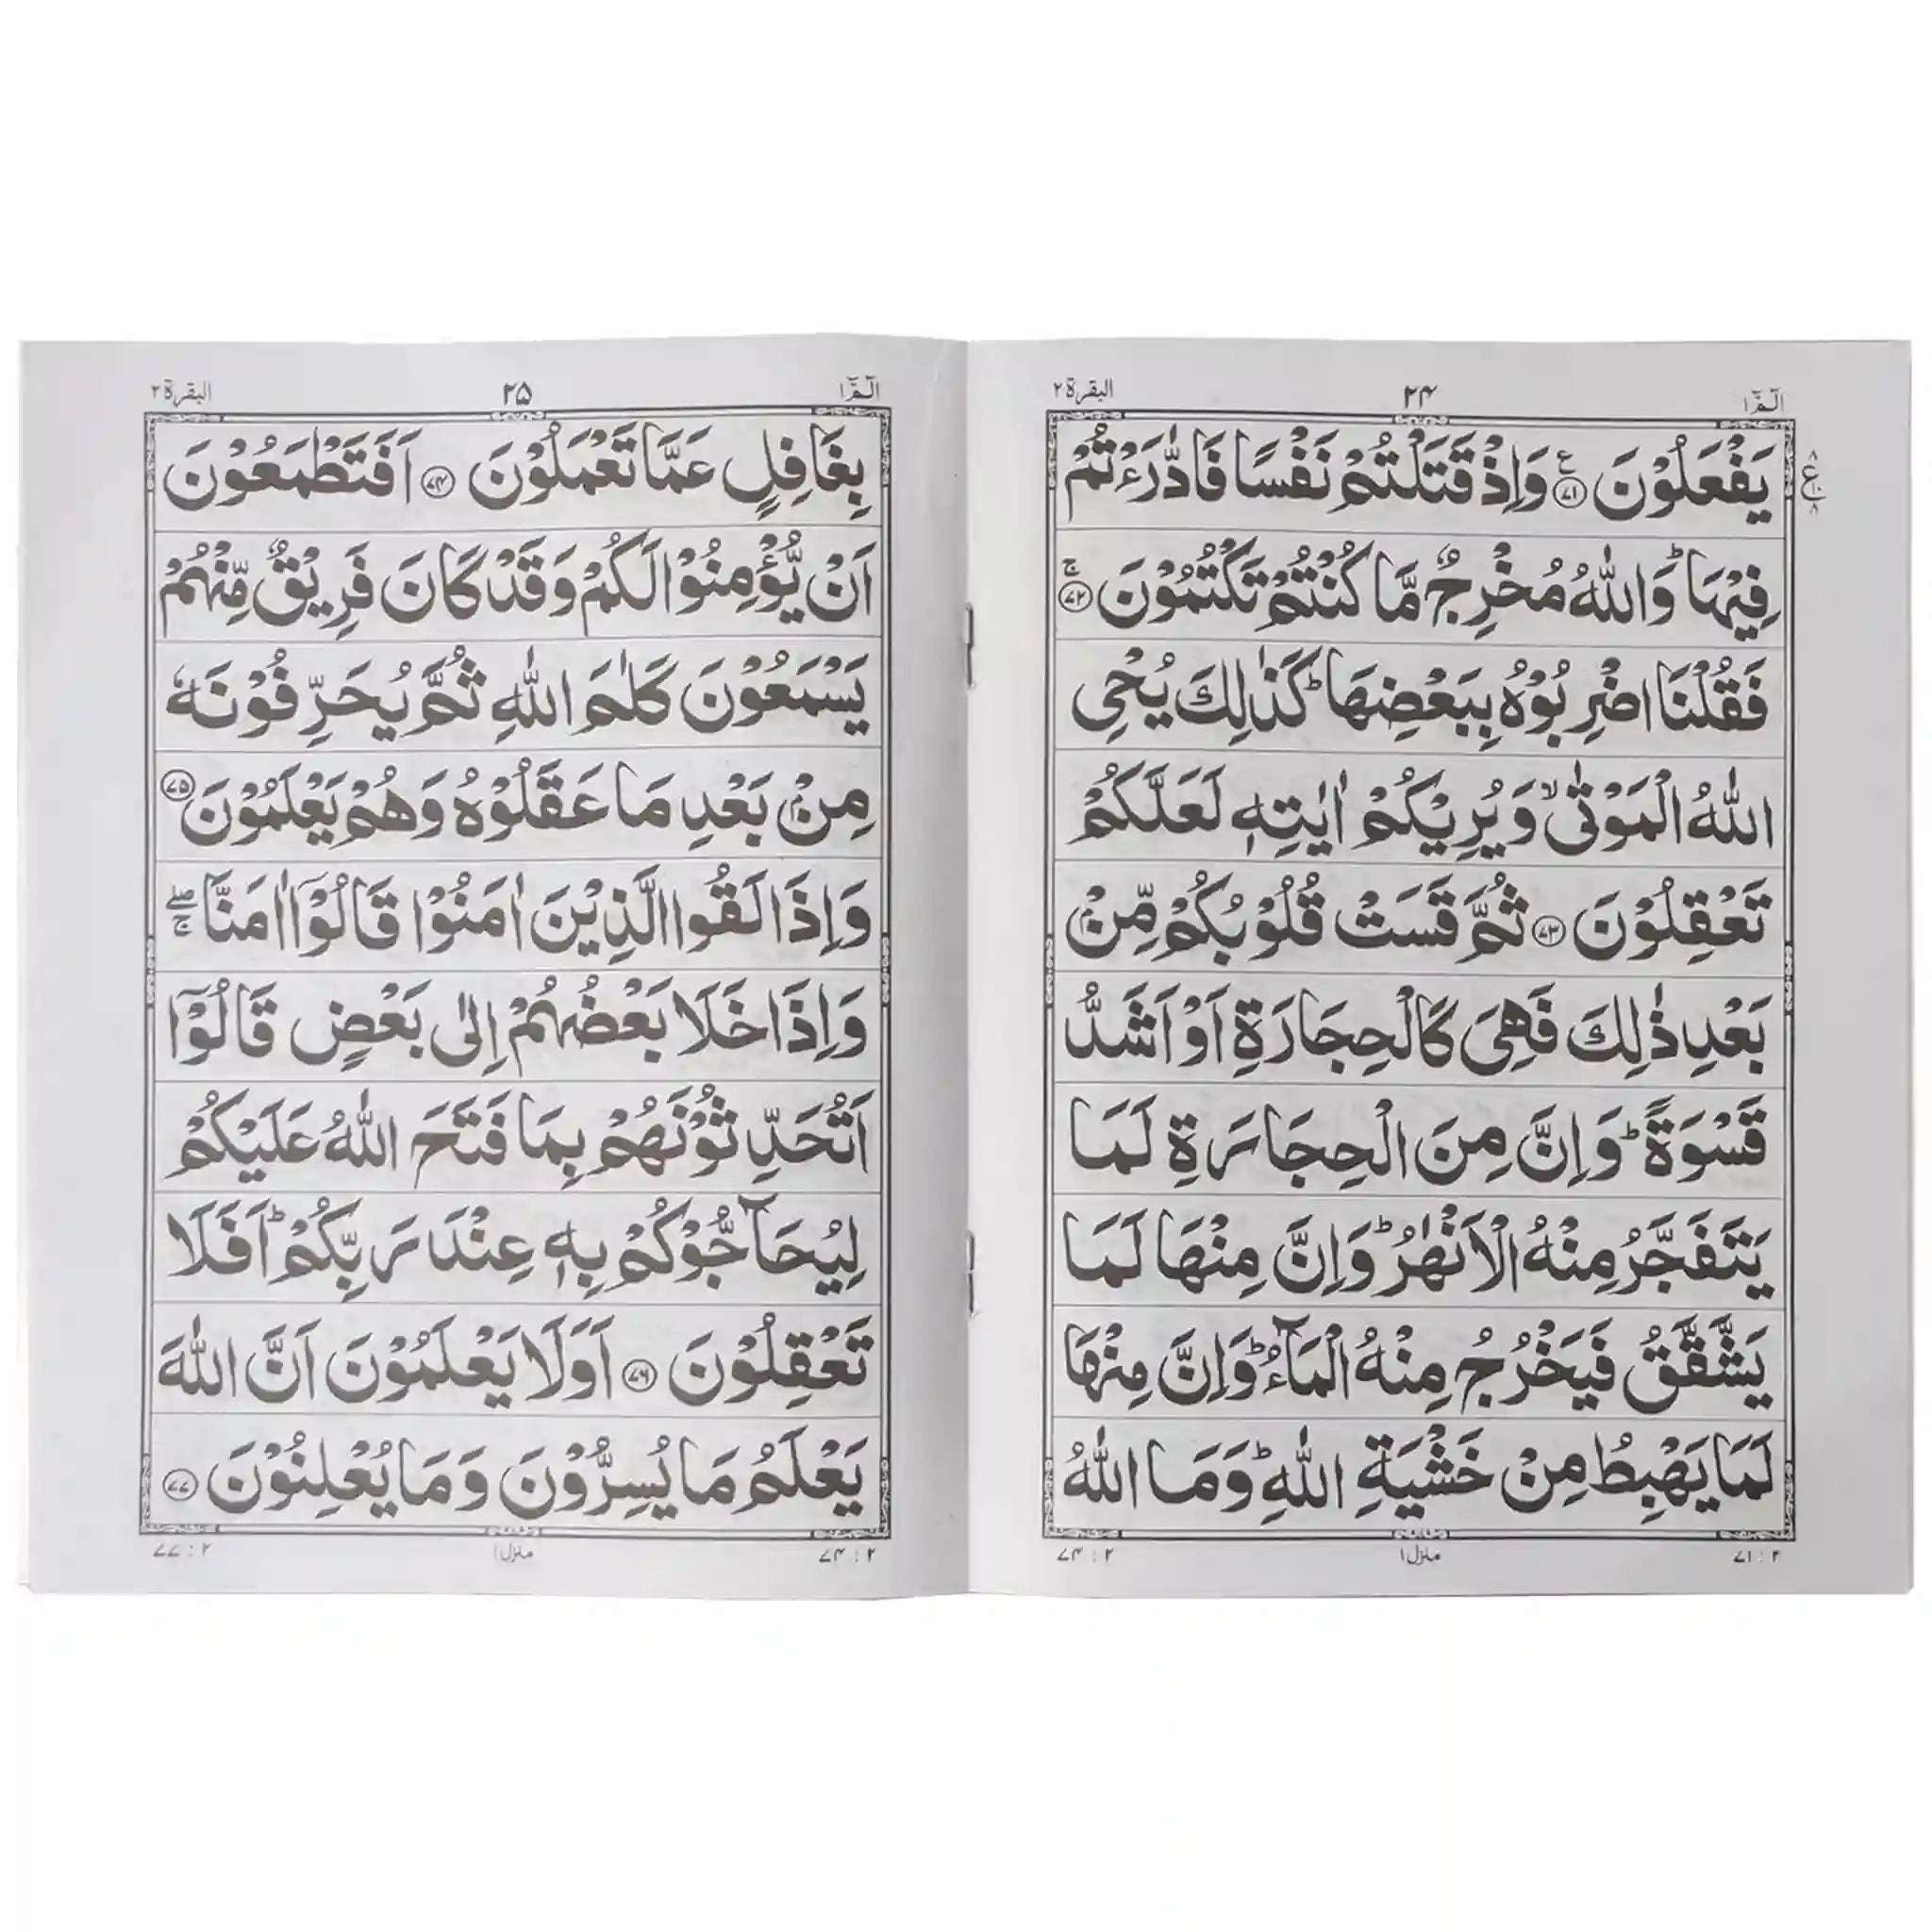 الٓمّٓ ١
٢٤
البقرة ٢
يَفْعَلُوْنَ ﴿٧١﴾ ع وَاِذْ قَتَلْتُمْ نَفْسًا فَادّٰرَءْتُمْ
فِيْهَا ؕ وَاللّٰهُ مُخْرِجٌ مَّا كُنْتُمْ تَكْتُمُوْنَ ﴿٧٢﴾ ۚ
فَقُلْنَا اضْرِبُوْهُ بِبَعْضِهَا ؕ كَذٰلِكَ يُحْيِ
اللّٰهُ الْمَوْتٰى ۙ وَيُرِيْكُمْ اٰيٰتِهٖ لَعَلَّكُمْ
تَعْقِلُوْنَ ﴿٧٣﴾ ثُمَّ قَسَتْ قُلُوْبُكُمْ مِّنْۢ
بَعْدِ ذٰلِكَ فَهِيَ كَالْحِجَارَةِ اَوْ اَشَدُّ
قَسْوَةً ؕ وَاِنَّ مِنَ الْحِجَارَةِ لَمَا
يَتَفَجَّرُ مِنْهُ الْاَنْهٰرُ ؕ وَاِنَّ مِنْهَا لَمَا
يَشَّقَّقُ فَيَخْرُجُ مِنْهُ الْمَآءُ ؕ وَاِنَّ مِنْهَا
لَمَا يَهْبِطُ مِنْ خَشْيَةِ اللّٰهِ ؕ وَمَا اللّٰهُ
٢ : ٧١
منزل ١
٢ : ٧٤
٨
ع
٨
الٓمّٓ ١
٢٥
البقرة ٢
بِغَافِلٍ عَمَّا تَعْمَلُوْنَ ﴿٧٤﴾ اَفَتَطْمَعُوْنَ
اَنْ يُّؤْمِنُوْا لَكُمْ وَقَدْ كَانَ فَرِيْقٌ مِّنْهُمْ
يَسْمَعُوْنَ كَلٰمَ اللّٰهِ ثُمَّ يُحَرِّفُوْنَهٗ
مِنْۢ بَعْدِ مَا عَقَلُوْهُ وَهُمْ يَعْلَمُوْنَ ﴿٧٥﴾
وَاِذَا لَقُوا الَّذِيْنَ اٰمَنُوْا قَالُوْٓا اٰمَنَّا ۖۚ
وَاِذَا خَلَا بَعْضُهُمْ اِلٰى بَعْضٍ قَالُوْٓا
اَتُحَدِّثُوْنَهُمْ بِمَا فَتَحَ اللّٰهُ عَلَيْكُمْ
لِيُحَآجُّوْكُمْ بِهٖ عِنْدَ رَبِّكُمْ ؕ اَفَلَا
تَعْقِلُوْنَ ﴿٧٦﴾ اَوَلَا يَعْلَمُوْنَ اَنَّ اللّٰهَ
يَعْلَمُ مَا يُسِرُّوْنَ وَمَا يُعْلِنُوْنَ ﴿٧٧﴾
٢ : ٧٤
منزل ١
٢ : ٧٧